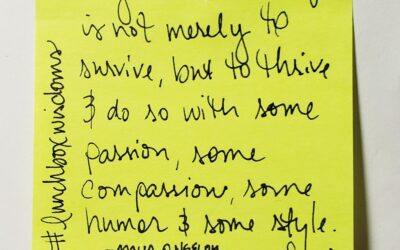 is not merely to
survive, but to thrive
& do so with some
passion, some
compassion, some
humor & some style.
- MAYA ANGELOU
#lunchboxwisdoms